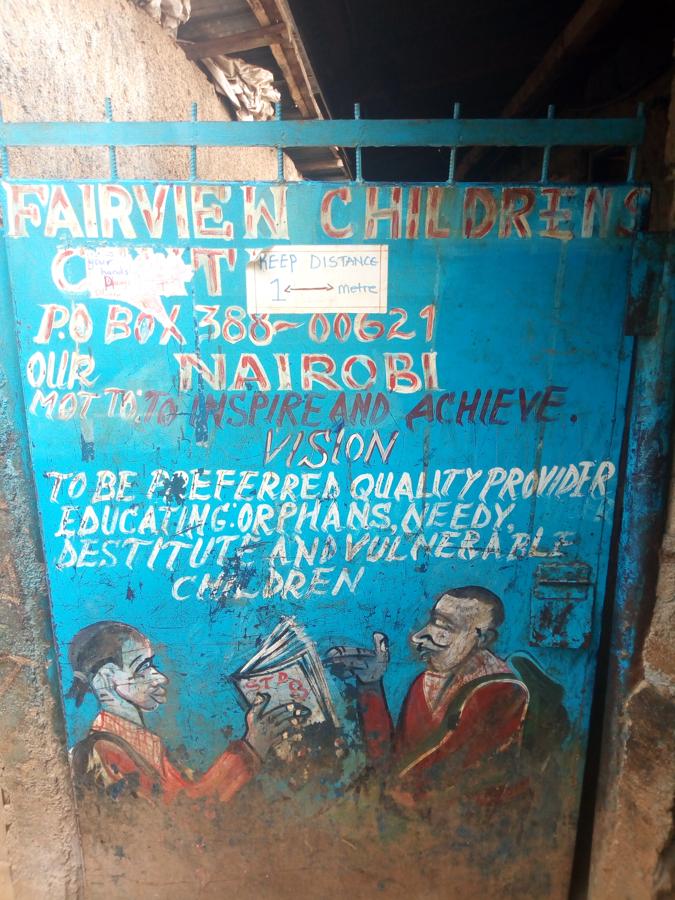 FAIRVIEW CHILDRENS
your
hands
KEEP DISTANCE
1 ↔ metre
P.O BOX 388-00621
OUR NAIROBI
MOTTO. TO INSPIRE AND ACHIEVE.
VISION
TO BE PREFERRED QUALITY PROVIDER
EDUCATING: ORPHANS, NEEDY,
DESTITUTE AND VULNERABLE
CHILDREN